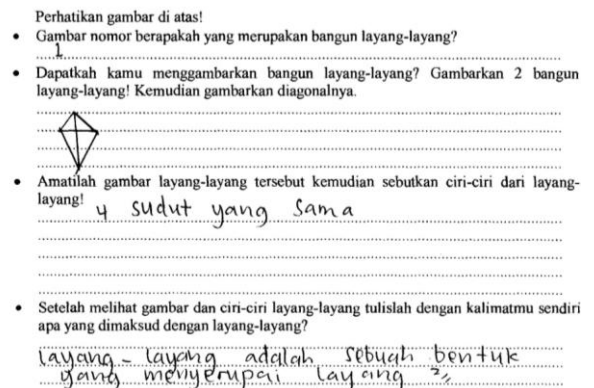 Perhatikan gambar di atas!
• Gambar nomor berapakah yang merupakan bangun layang-layang?
1
• Dapatkah kamu menggambarkan bangun layang-layang? Gambarkan 2 bangun
layang-layang! Kemudian gambarkan diagonalnya.
• Amatilah gambar layang-layang tersebut kemudian sebutkan ciri-ciri dari layang-
layang!
4 sudut yang sama
• Setelah melihat gambar dan ciri-ciri layang-layang tulislah dengan kalimatmu sendiri
apa yang dimaksud dengan layang-layang?
layang - layang adalah sebuah bentuk
yang menyerupai layang 2,,